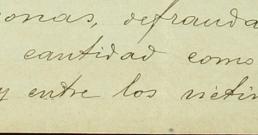 onas, defrauda
cantidad como
y entre los victi